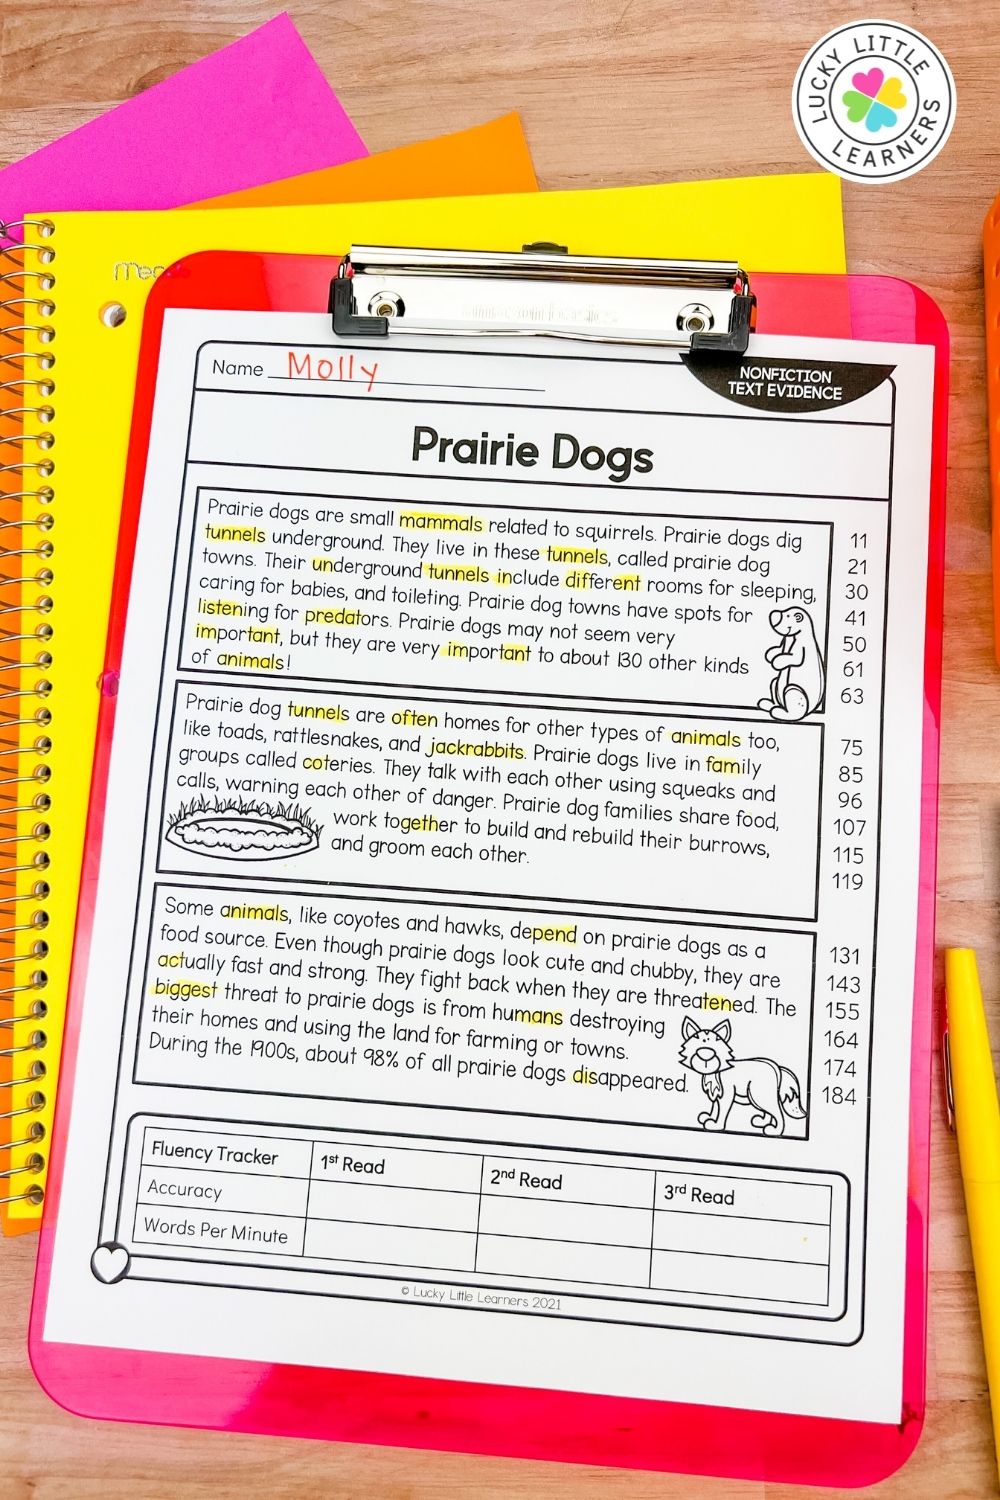 LUCKY LITTLE
LEARNERS
Name Molly
NONFICTION
TEXT EVIDENCE
Prairie Dogs
Prairie dogs are small mammals related to squirrels. Prairie dogs dig 11
tunnels underground. They live in these tunnels, called prairie dog 21
towns. Their underground tunnels include different rooms for sleeping, 30
caring for babies, and toileting. Prairie dog towns have spots for 41
listening for predators. Prairie dogs may not seem very 50
important, but they are very important to about 130 other kinds 61
of animals! 63
Prairie dog tunnels are often homes for other types of animals too, 75
like toads, rattlesnakes, and jackrabbits. Prairie dogs live in family 85
groups called coteries. They talk with each other using squeaks and 96
calls, warning each other of danger. Prairie dog families share food, 107
work together to build and rebuild their burrows, 115
and groom each other. 119
Some animals, like coyotes and hawks, depend on prairie dogs as a 131
food source. Even though prairie dogs look cute and chubby, they are 143
actually fast and strong. They fight back when they are threatened. The 155
biggest threat to prairie dogs is from humans destroying 164
their homes and using the land for farming or towns. 174
During the 1900s, about 98% of all prairie dogs disappeared. 184
Fluency Tracker 1st Read 2nd Read 3rd Read
Accuracy
Words Per Minute
© Lucky Little Learners 2021